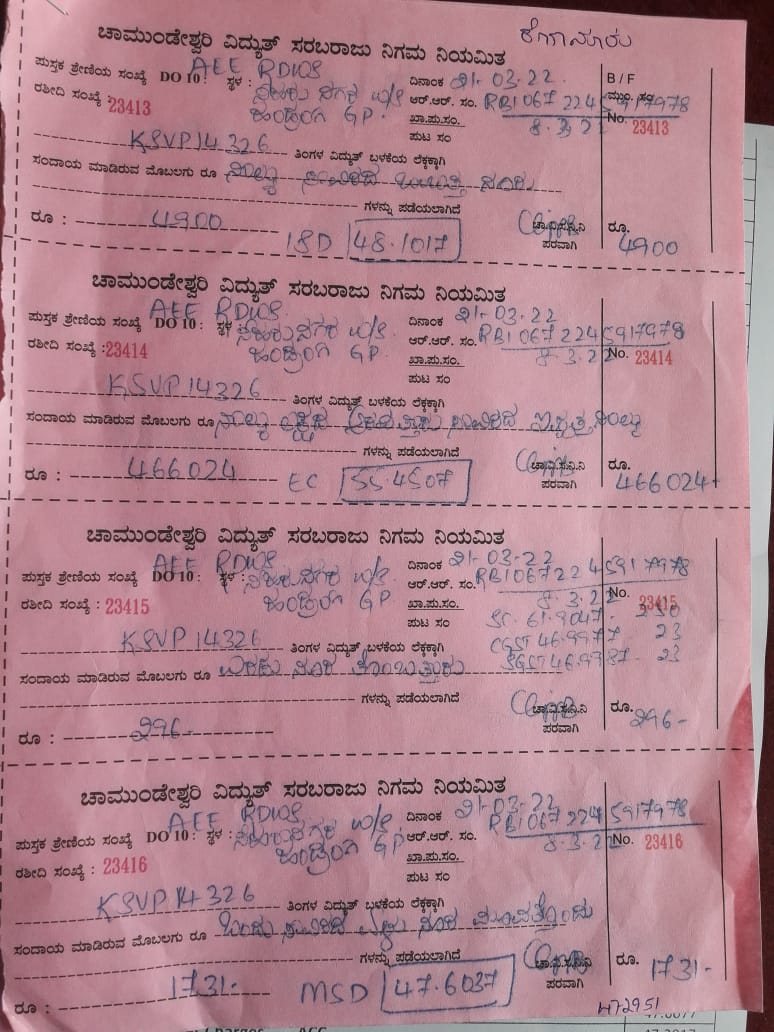 ಕೆಗಾನೂರು
ಚಾಮುಂಡೇಶ್ವರಿ ವಿದ್ಯುತ್ ಸರಬರಾಜು ನಿಗಮ ನಿಯಮಿತ
ಪುಸ್ತಕ ಶ್ರೇಣಿಯ ಸಂಖ್ಯೆ DO 10 : AEE RDWS ಸ್ಥಳ : ದಿನಾಂಕ 21-03-22 B/F
ರಶೀದಿ ಸಂಖ್ಯೆ : 23413 W/S ಆರ್.ಆರ್. ಸಂ. RB1067224 5917978 ಮುಂ. ಸಂ.
GP. ಖಾ.ಪು.ಸಂ. 8.3.22 No. 23413
ಪುಟ ಸಂ
KSVP14326 ತಿಂಗಳ ವಿದ್ಯುತ್ ಬಳಕೆಯ ಲೆಕ್ಕಕ್ಕಾಗಿ
ಸಂದಾಯ ಮಾಡಿರುವ ಮೊಬಲಗು ರೂ ನಾಲ್ಕು ಸಾವಿರದ ಒಂಬತ್ತು ನೂರು
ಗಳನ್ನು ಪಡೆಯಲಾಗಿದೆ
ರೂ : 4900 ISD 48.1017 ಚಾ.ವಿ.ಸ.ನಿ.ನಿ ಪರವಾಗಿ ರೂ. 4900
ಚಾಮುಂಡೇಶ್ವರಿ ವಿದ್ಯುತ್ ಸರಬರಾಜು ನಿಗಮ ನಿಯಮಿತ
ಪುಸ್ತಕ ಶ್ರೇಣಿಯ ಸಂಖ್ಯೆ DO 10 : AEE RDWS ಸ್ಥಳ : W/S ದಿನಾಂಕ 21-03-22
ರಶೀದಿ ಸಂಖ್ಯೆ : 23414 GP. ಆರ್.ಆರ್. ಸಂ. RB1067224 5917978
ಖಾ.ಪು.ಸಂ. 8.3.22 No. 23414
ಪುಟ ಸಂ
KSVP14326 ತಿಂಗಳ ವಿದ್ಯುತ್ ಬಳಕೆಯ ಲೆಕ್ಕಕ್ಕಾಗಿ
ಸಂದಾಯ ಮಾಡಿರುವ ಮೊಬಲಗು ರೂ ನಾಲ್ಕು ಲಕ್ಷದ ಅರವತ್ತಾರು ಸಾವಿರದ ಇಪ್ಪತ್ತ ನಾಲ್ಕು
ಗಳನ್ನು ಪಡೆಯಲಾಗಿದೆ
ರೂ : 466024 EC 55.4507 ಚಾ.ವಿ.ಸ.ನಿ.ನಿ ಪರವಾಗಿ ರೂ. 466024
ಚಾಮುಂಡೇಶ್ವರಿ ವಿದ್ಯುತ್ ಸರಬರಾಜು ನಿಗಮ ನಿಯಮಿತ
ಪುಸ್ತಕ ಶ್ರೇಣಿಯ ಸಂಖ್ಯೆ DO 10 : AEE RDWS ಸ್ಥಳ : W/S ದಿನಾಂಕ 21-03-22
ರಶೀದಿ ಸಂಖ್ಯೆ : 23415 GP ಆರ್.ಆರ್. ಸಂ. RB1067224 5917978
ಖಾ.ಪು.ಸಂ. 8.3.22 No. 23415
ಪುಟ ಸಂ SC. 61.9047 - 250
KSVP14326 ತಿಂಗಳ ವಿದ್ಯುತ್ ಬಳಕೆಯ ಲೆಕ್ಕಕ್ಕಾಗಿ CGST 46.9977 23
ಸಂದಾಯ ಮಾಡಿರುವ ಮೊಬಲಗು ರೂ ಎರಡು ನೂರ ತೊಂಬತ್ತಾರು SGST 46.9987 - 23
ಗಳನ್ನು ಪಡೆಯಲಾಗಿದೆ
ರೂ : 296- ಚಾ.ವಿ.ಸ.ನಿ.ನಿ ಪರವಾಗಿ ರೂ. 296-
ಚಾಮುಂಡೇಶ್ವರಿ ವಿದ್ಯುತ್ ಸರಬರಾಜು ನಿಗಮ ನಿಯಮಿತ
ಪುಸ್ತಕ ಶ್ರೇಣಿಯ ಸಂಖ್ಯೆ DO 10 : AEE RDWS ಸ್ಥಳ : W/S ದಿನಾಂಕ 21-03-22
ರಶೀದಿ ಸಂಖ್ಯೆ : 23416 GP. ಆರ್.ಆರ್. ಸಂ. RB1067224 5917978
ಖಾ.ಪು.ಸಂ. 8.3.22 No. 23416
ಪುಟ ಸಂ
KSVP14326 ತಿಂಗಳ ವಿದ್ಯುತ್ ಬಳಕೆಯ ಲೆಕ್ಕಕ್ಕಾಗಿ
ಸಂದಾಯ ಮಾಡಿರುವ ಮೊಬಲಗು ರೂ ಒಂದು ಸಾವಿರದ ಏಳು ನೂರ ಮೂವತ್ತೊಂದು
ಗಳನ್ನು ಪಡೆಯಲಾಗಿದೆ
ರೂ : 1731- MSD 47.6037 ಚಾ.ವಿ.ಸ.ನಿ.ನಿ ಪರವಾಗಿ ರೂ. 1731-
472951